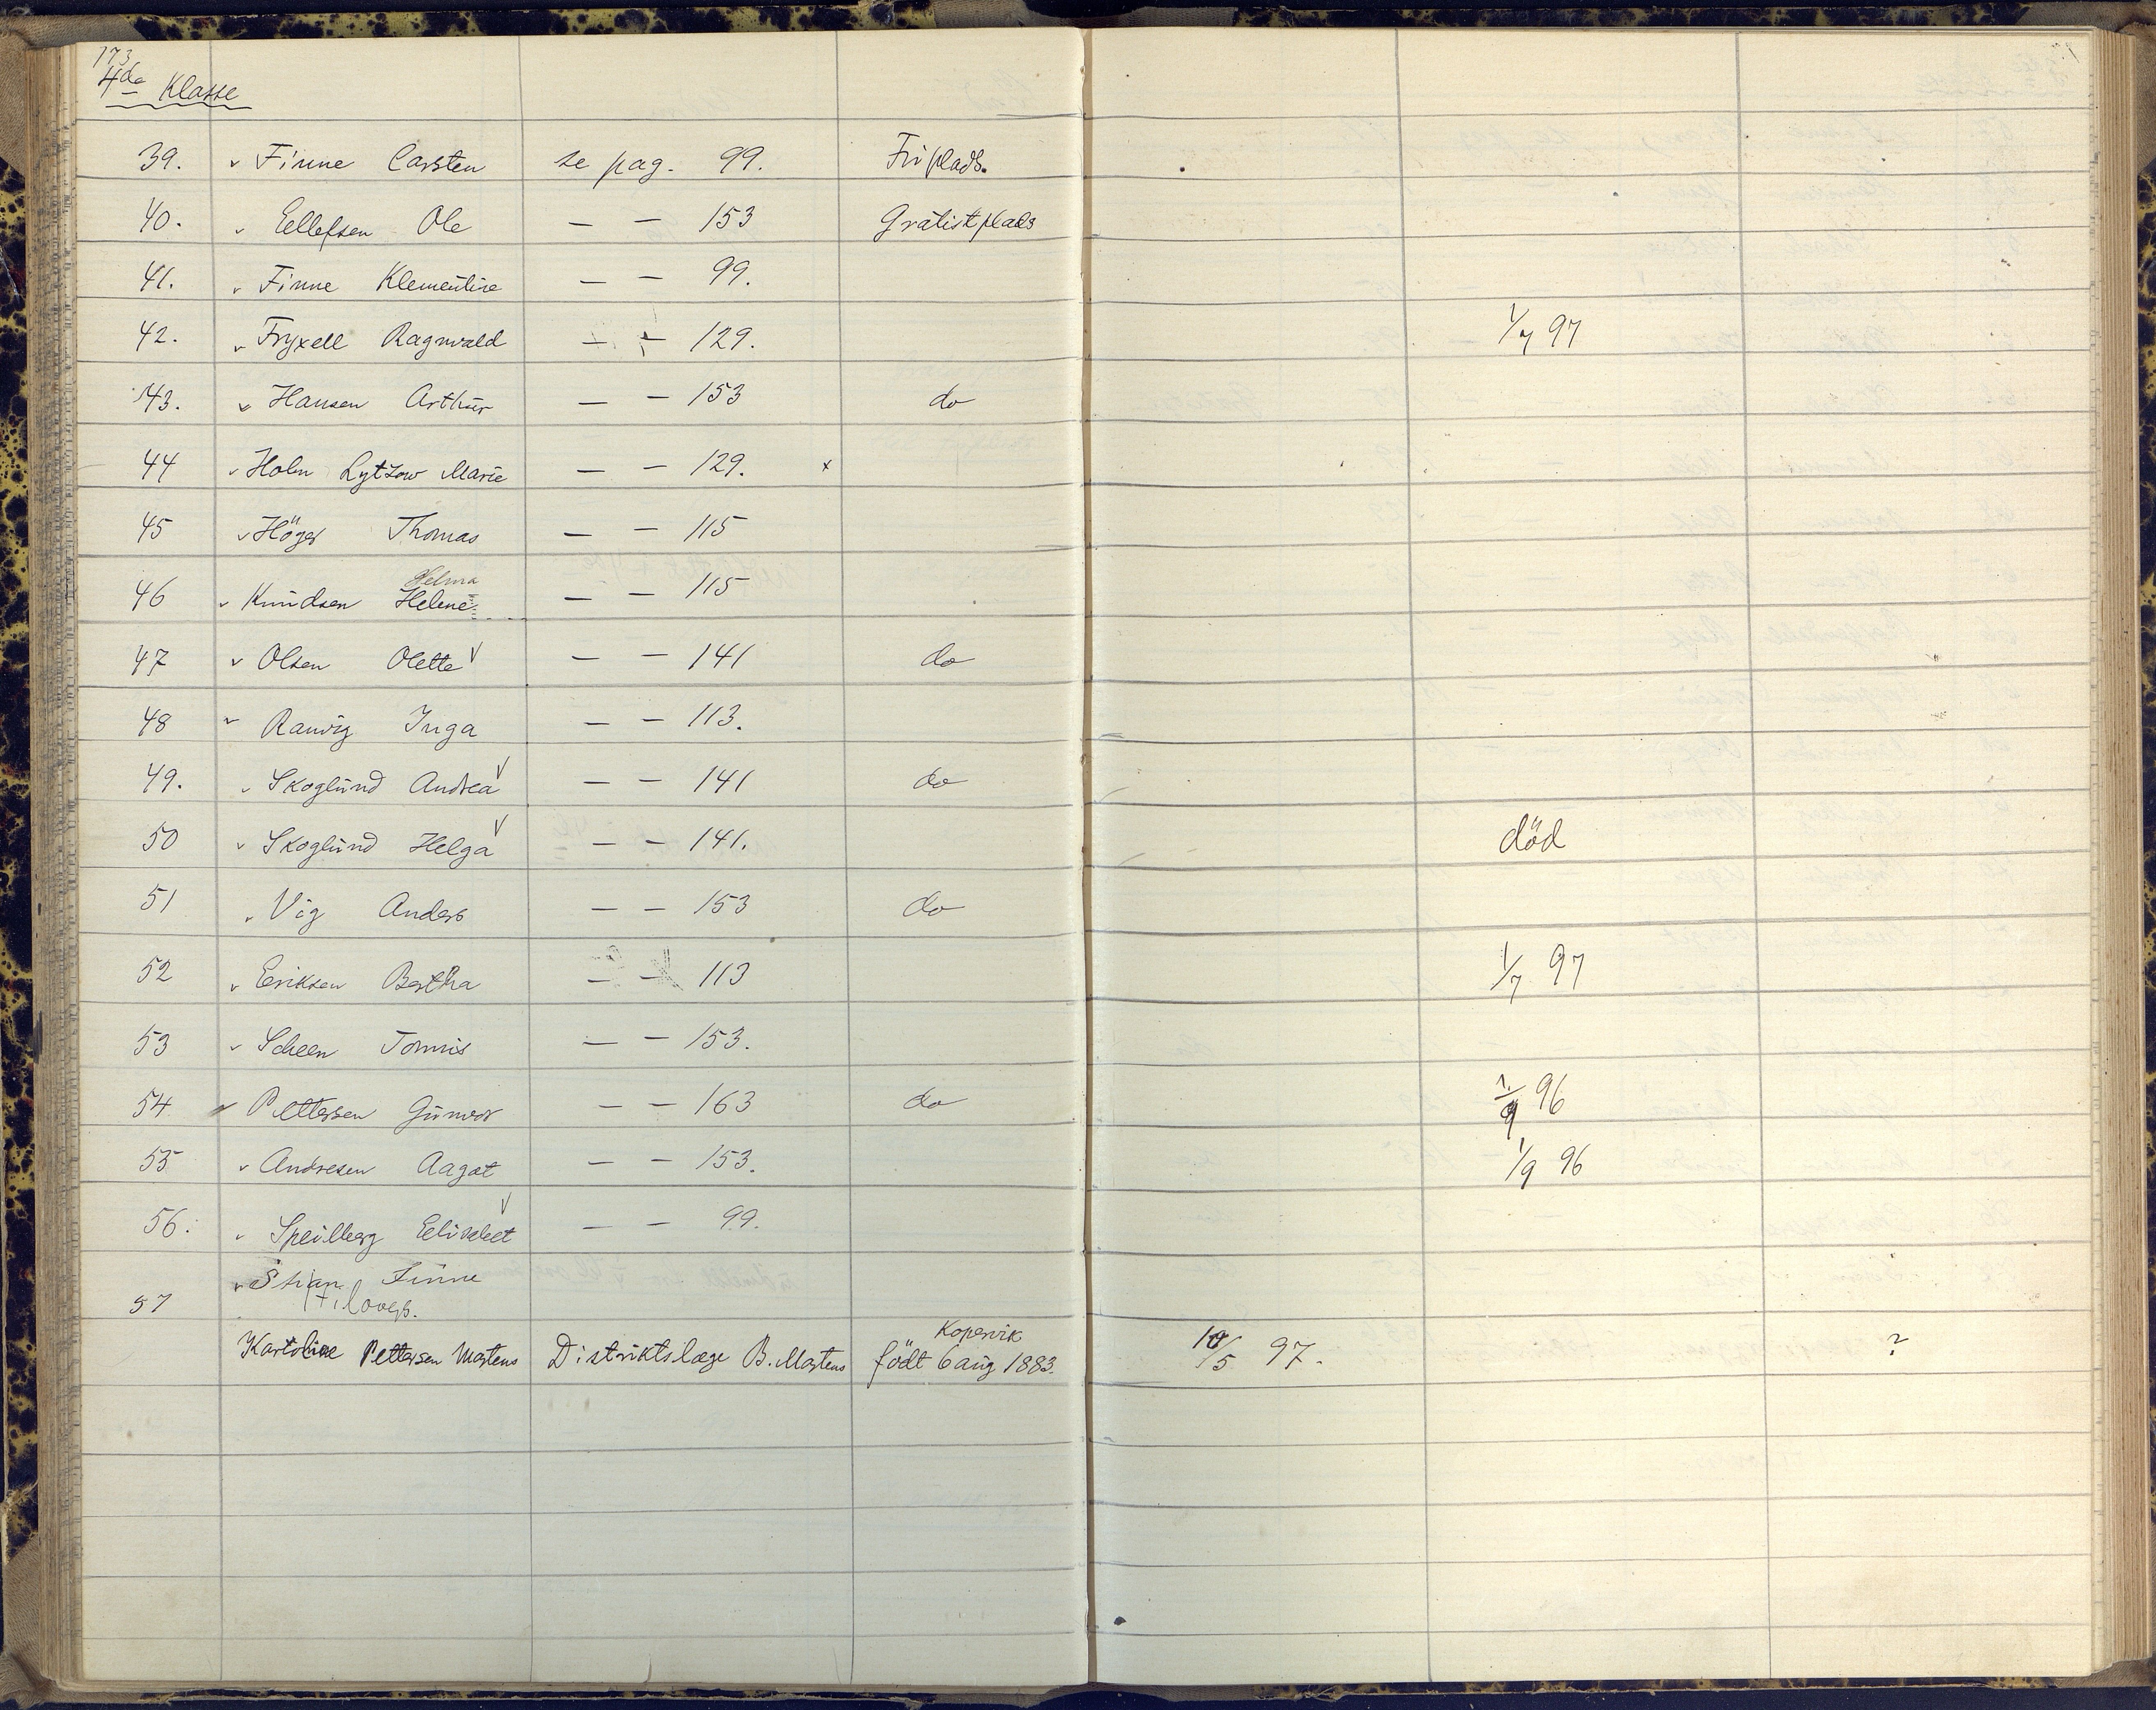 173
4de Klasse
39. Finne Carsten se pag. 99. Friplads.
40. Ellefsen Ole — — 153 Gratistplads
41. Finne Klementine — — 99.
42. Fryxell Ragnvald — — 129. 1/7 97
43. Hansen Arthur — — 153 do
44 Holm Lytzow Marie — — 129. x
45 Höger Thomas — — 115
Helma
46 Knudsen Helene — — 115
47 Olsen Olette — — 141 do
48 Ranvig Inga — — 113.
49. Skoglund Andrea — — 141 do
50 Skoglund Helga — — 141. död
51 Vig Anders — — 153 do
52 Eriksen Bertha — — 113 1/7 97
53 Scheen Tomris — — 153.
54 Pettersen Gunvor — — 163 do 1/9 96
55 Andresen Aagot — — 153. 1/9 96
56. Speilberg Elisabet — — 99.
Stian Finne
57
Kopervik
Karoline Pettersen Martens Distriktslæge B. Martens födt 6 aug 1883. 10/5 97. ?